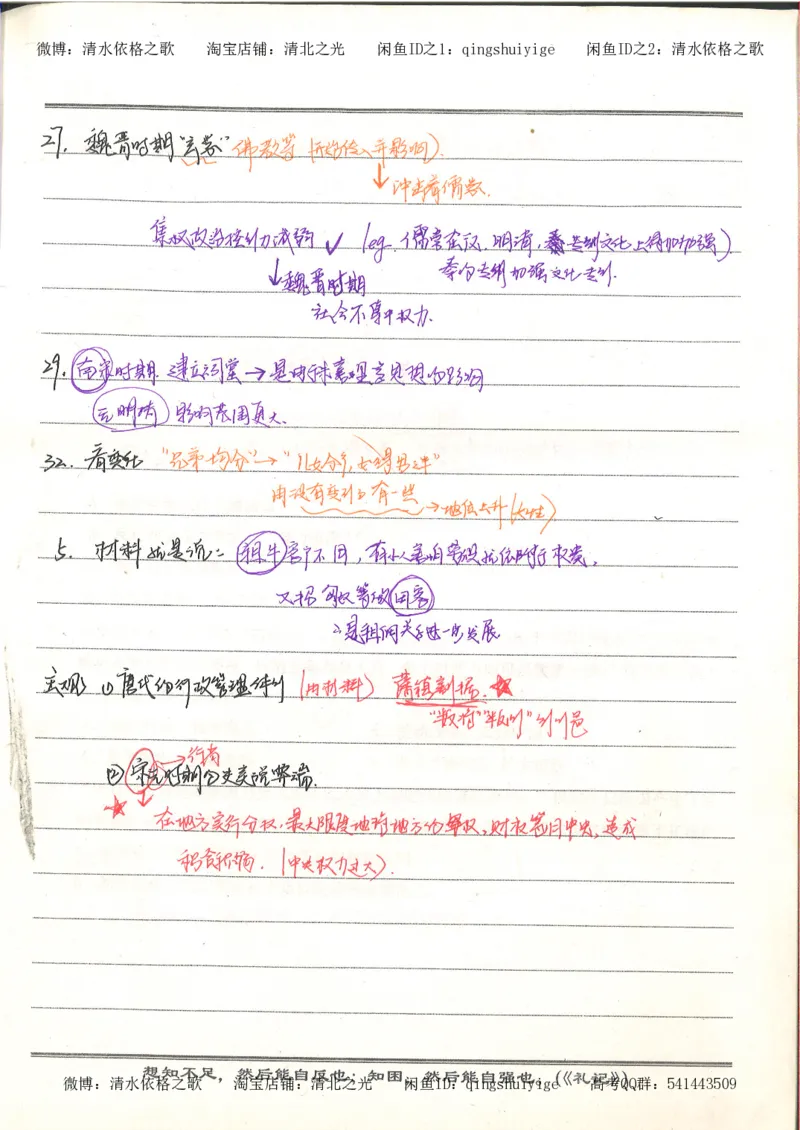 微博：清水依格之歌 淘宝店铺：清北之光 闲鱼ID之1：qingshuiyige 闲鱼ID之2：清水依格之歌
27. 魏晋时期"玄学" 佛教等(开始传入并影响).
↓冲击着儒教.
集权政治控制力减弱 ✓ (eg. 儒学在汉. 明清, 专制文化上得加加强)
↓魏晋时期 秦的专制加强文化专制.
社会不集中权力.
29. 南宋时期 建立祠堂→是由于宋书理学思想的影响
元明清 影响范围更大.
32. 看变化 "兄弟均分"→"儿女分产, 女得男之半"
由没有变到有一些 →地位上升(女性)
5. 材料就是说: 租牛客户不同, 有
又招 等做 田客
∴是租佃关系进一步发展
主观: ① 唐代的行政管理体制 (由材料) 藩镇割据. ★
② 宋 →行省
★ ↓
在地方实行分权, 最大限度地将地方的 权, 财权 中央, 造成
积贫积弱. (中央权力过大).
想知不足，然后能自反也；知困，然后能自强也。(《礼记》)
微博：清水依格之歌 淘宝店铺：清北之光 闲鱼ID：qingshuiyige 高考QQ群：541443509